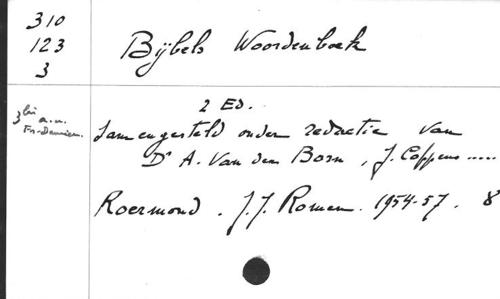 310
123
3
Bijbels Woordenboek
3bis a.u.
Fr. Damien.
2 Ed.
Samengesteld onder redactie van
Dr A. Van den Born, J. Coppens .....
Roermond. J.J. Romen. 1954-57. 8